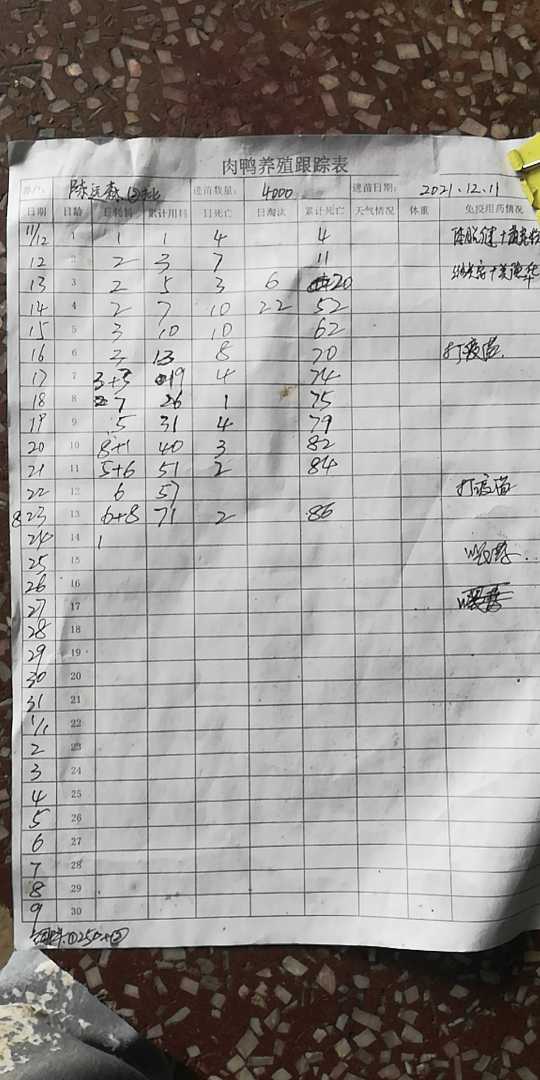 肉鸭养殖跟踪表
养户: 陈远森 进苗数量: 4000 进苗日期: 2021.12.11
日期 日龄 日耗料 累计用料 日死亡 日淘汰 累计死亡 天气情况 体重 免疫用药情况
11/12 1 1 1 4 4
12 2 2 3 7 11
13 3 2 5 3 6 20
14 4 2 7 10 22 52
15 5 3 10 10 62
16 6 3 13 8 70 打疫苗.
17 7 3+3 19 4 74
18 8 7 26 1 75
19 9 5 31 4 79
20 10 8+1 40 3 82
21 11 5+6 51 2 84
22 12 6 57 打疫苗
8 23 13 6+8 71 2 86
24 14 1
25 15
26 16
27 17
28 18
29 19
30 20
31 21
1/1 22
2 23
3 24
4 25
5 26
6 27
7 28
8 29
9 30
①250+②